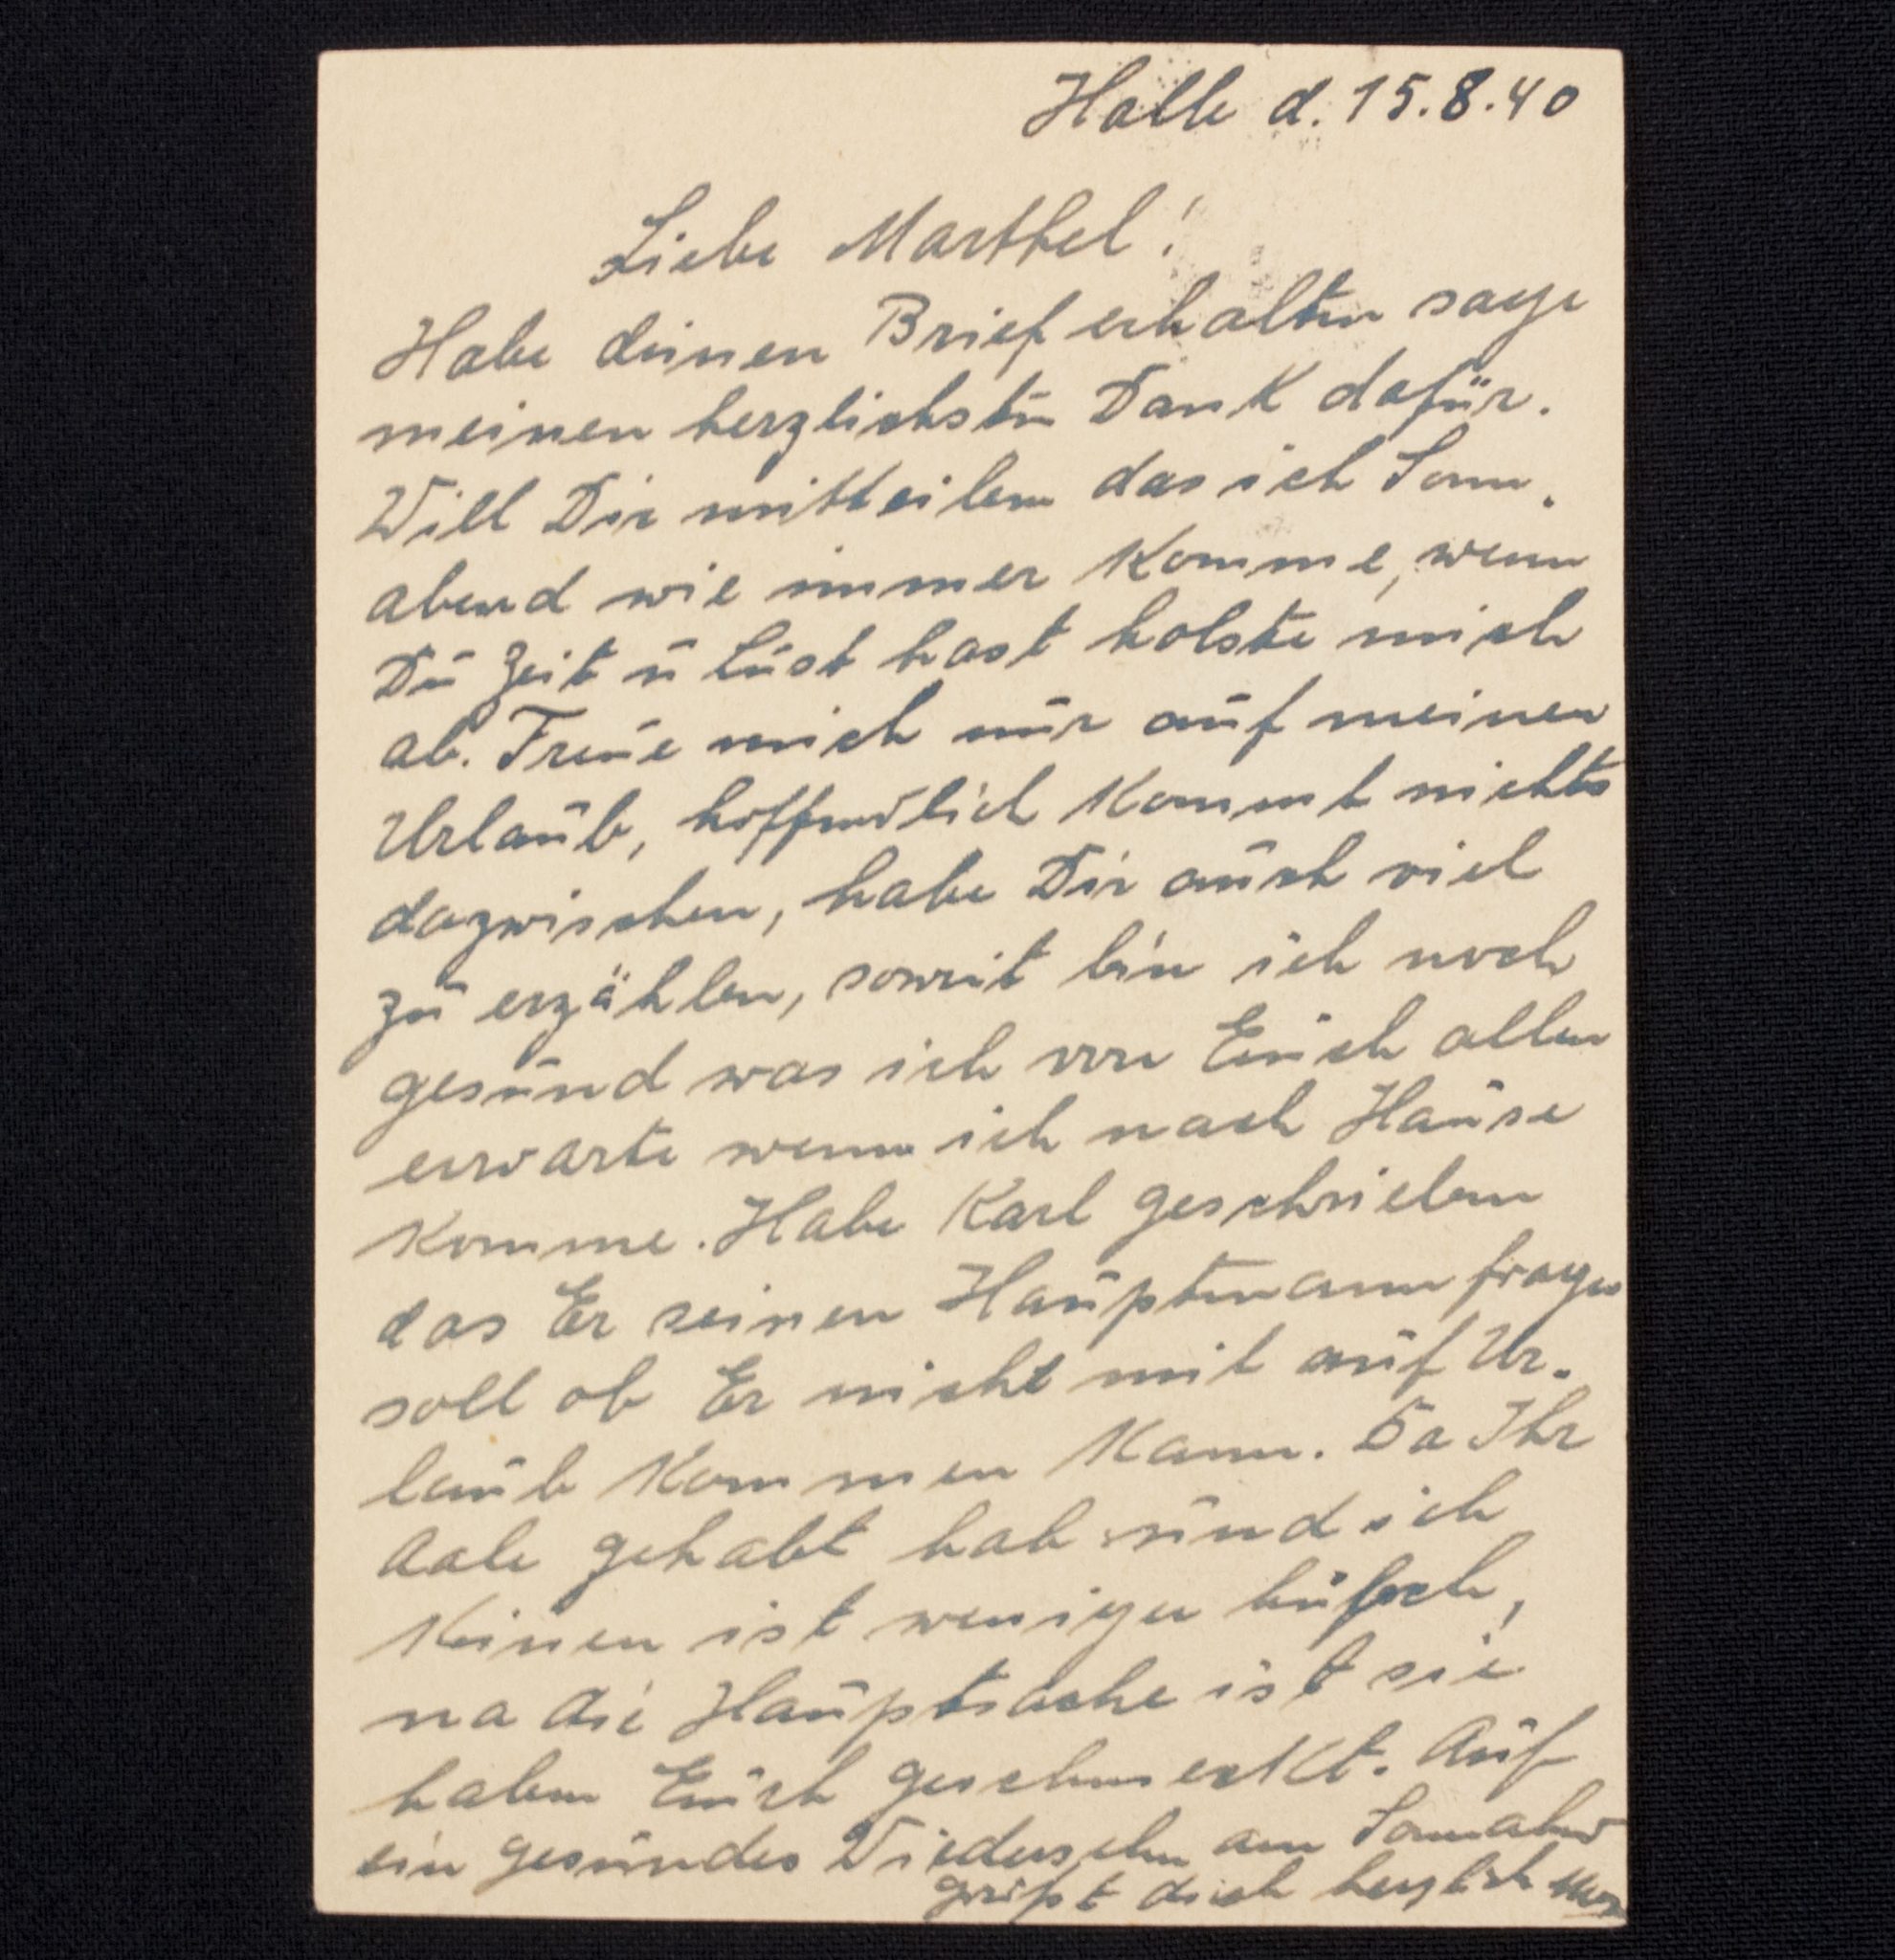 Halle d. 15.8.40
Liebe Marthel!
Habe deinen Brief erhalten sage
meinen herzlichsten Dank dafür.
Will Dir mitteilem das ich Sonn.
abend wie immer Komme, wenn
Dū Zeit ū Lūst hast holste mich
ab. Freūe mich nūr aūf meinen
Urlaūb, hoffendlich Kommt nichts
dazwischen, habe Dir aūch viel
zū erzählen, soweit bin ich noch
gesūnd was ich von Eūch allen
erwarte wenn ich nach Haūse
Komme. Habe Karl geschrieben
das Er seinen Haūptmann fragen
soll ob Er nicht mit aūf Ur.
laūb Kommen Kann. Da Ihr
Aale gehabt hab ūnd ich
Keinen ist weniger hüpsch,
na die Haūptsache ist sie
haben Eūch geschmeckt. Aūf
ein gesūndes Wiedersehn am Sonnabend
grüßt dich herzlich